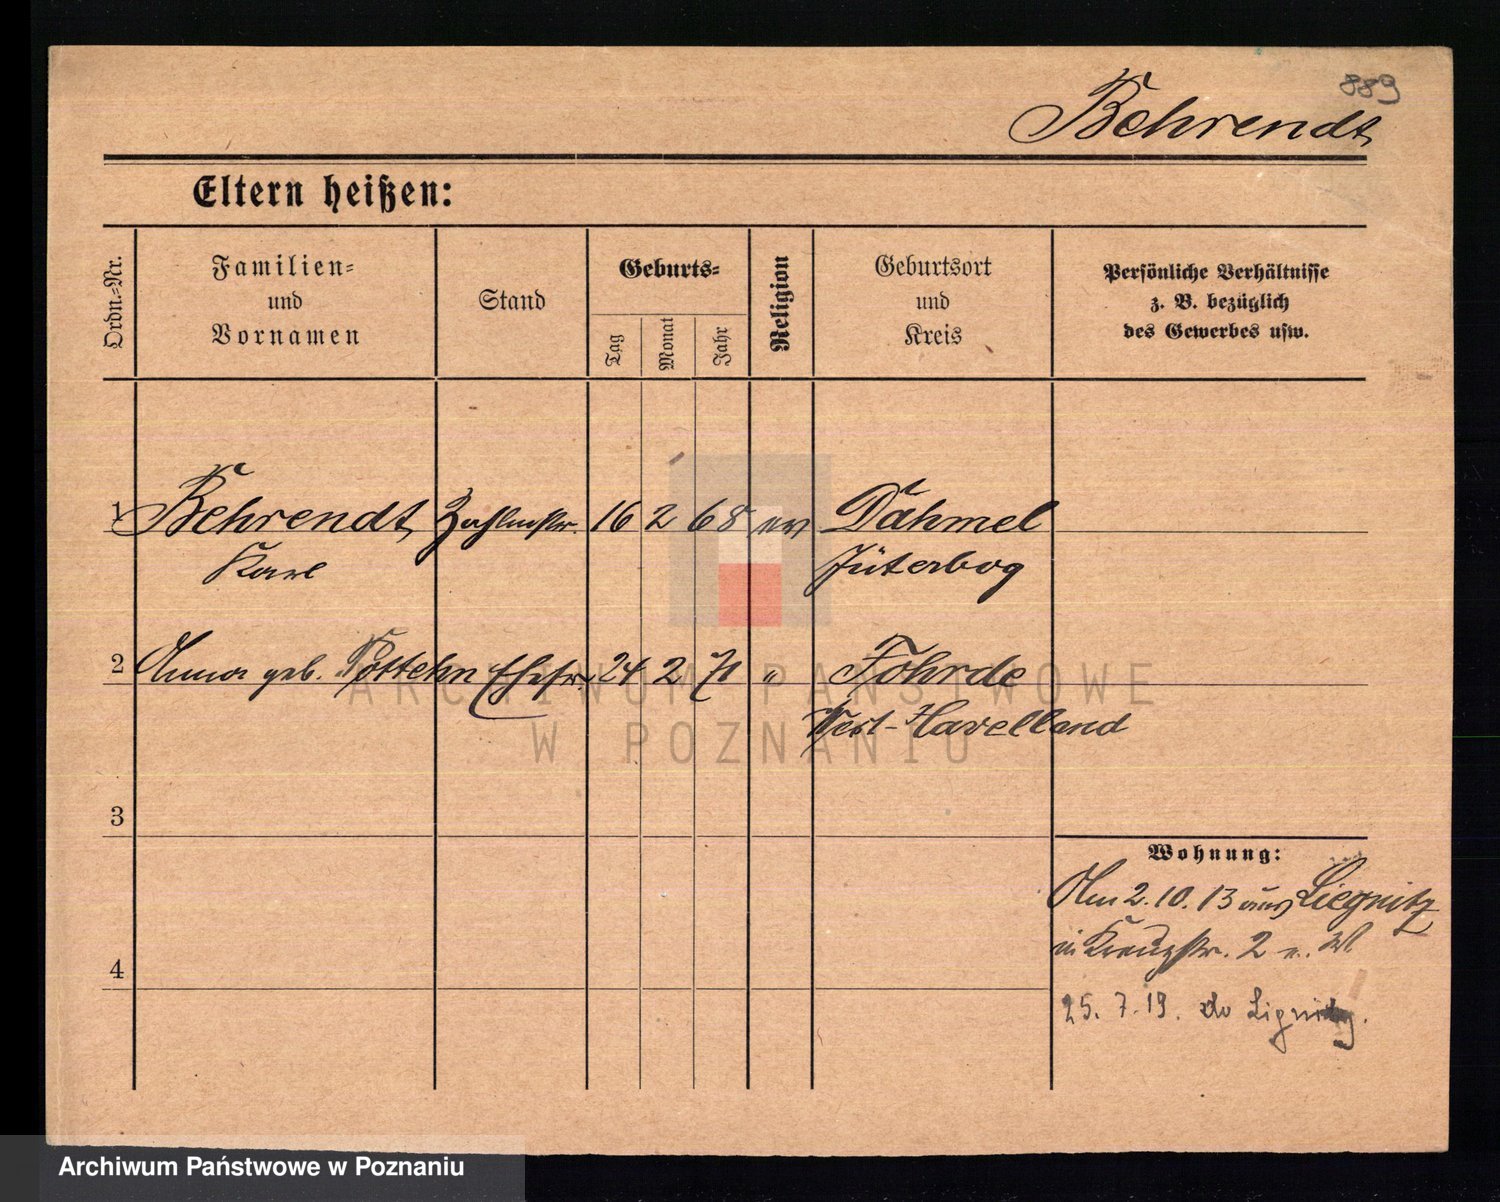 889
Behrendt
Eltern heißen:
Ordn.-Nr.
Familien-
und
Vornamen
Stand
Geburts-
Tag
Monat
Jahr
Religion
Geburtsort
und
Kreis
Persönliche Verhältnisse
z. B. bezüglich
des Gewerbes usw.
1 Behrendt Zahlmstr. 16 2 68 ev Dahmel
Karl Jüterbog
2 Anna geb. Ehefr. 24 2 71 " Fohrde
West-Havelland
3
Wohnung:
Am 2.10.13 aus Liegnitz
in Kreuzstr. 2 W.
4
25.7.19. do
ARCHIWUM PAŃSTWOWE
W POZNANIU
Archiwum Państwowe w Poznaniu